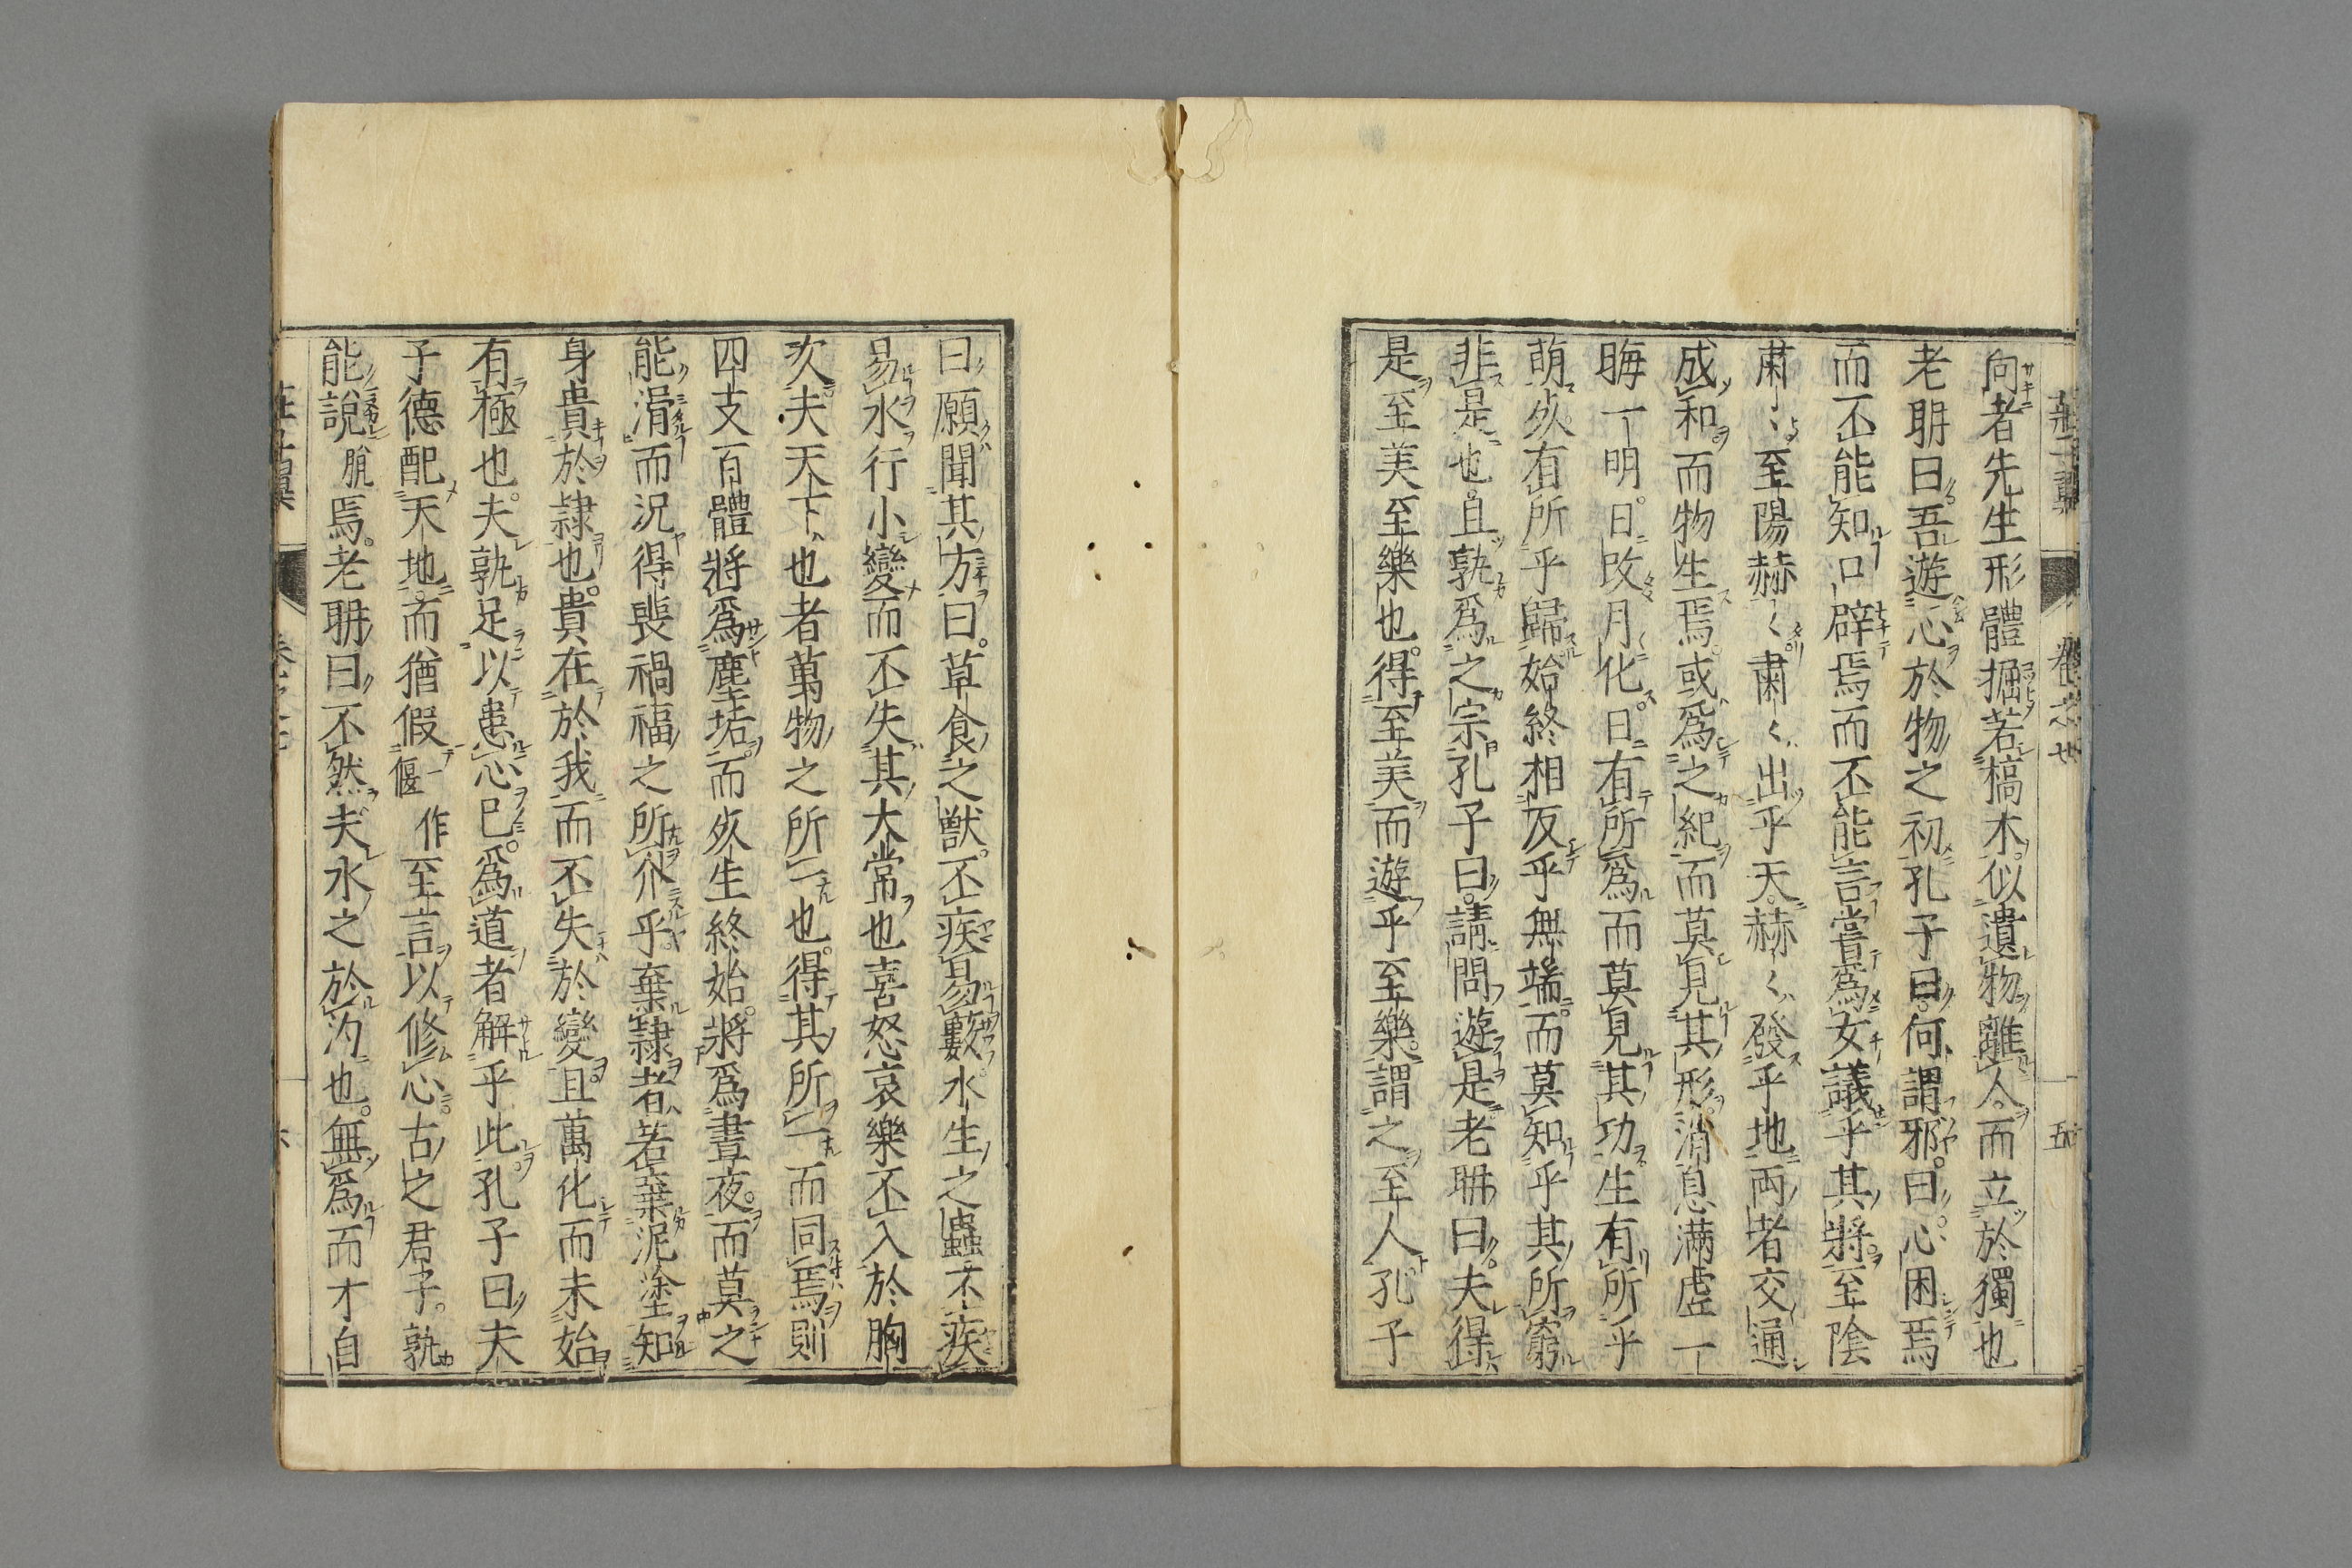 向者先生形體掘若槁木似遺物離人而立於獨也
老耼曰吾遊心於物之初孔子曰何謂邪曰心困焉
而不能知口辟焉而不能言嘗爲女議乎其將至陰
肅〻至陽赫〱肅〱出乎天赫〱發乎地兩者交通
成和而物生焉或爲之紀而莫見其形消息滿虛一
晦一明日改月化日有所爲而莫見其功生有所乎
萌死有所乎歸始終相反乎無端而莫知乎其所窮
非是也且孰爲之宗孔子曰請問遊是老耼曰夫得
是至美至樂也得至美而遊乎至樂謂之至人孔子
曰願聞其方曰草食之獸不疾易藪水生之蟲不疾
易水行小變而不失其大常也喜怒哀樂不入於胸
次夫天下也者萬物之所一也得其所一而同焉則
四支百體將爲塵垢而死生終始將爲晝夜而莫之
能滑而況得喪禍福之所介乎棄隸者若棄泥塗知
身貴於隸也貴在於我而不失於變且萬化而未始
有極也夫孰足以患心已爲道者解乎此孔子曰夫
子德配天地而猶假一作偃至言以修心古之君子孰
能說脫焉老耼曰不然夫水之於汋也無爲而才自